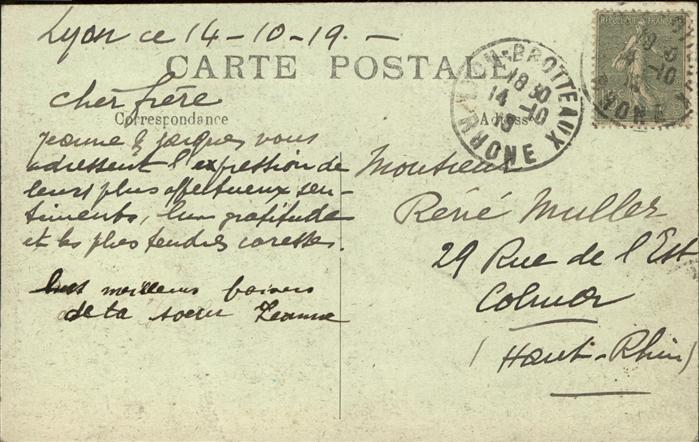 Lyon ce 14-10-19.-
CARTE POSTALE
Correspondance
Adresse
REPUBLIQUE FRANCAISE
LYON-BROTTEAUX
18 30
14 -10
19
RHONE
Cher frère
Jeanne & Jacques vous
adressent l'expression de
leurs plus affectueux sen-
timents, leur gratitude
et les plus tendres caresses.
meilleurs baisers
de ta soeur Jeanne
Monsieur
René Muller
29 Rue de l'Est
Colmar
(Haut-Rhin)